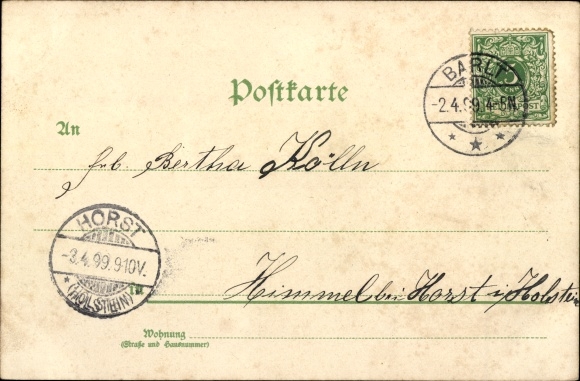 BARLT
-2.4.99.4-5N.
5
REICHSPOST
Postkarte
An
Frl. Bertha Kölln
HORST
-3.4.99.9-10V.
(HOLSTEIN)
In
Himmel bei Horst i/Holstein
Wohnung
(Straße und Hausnummer)